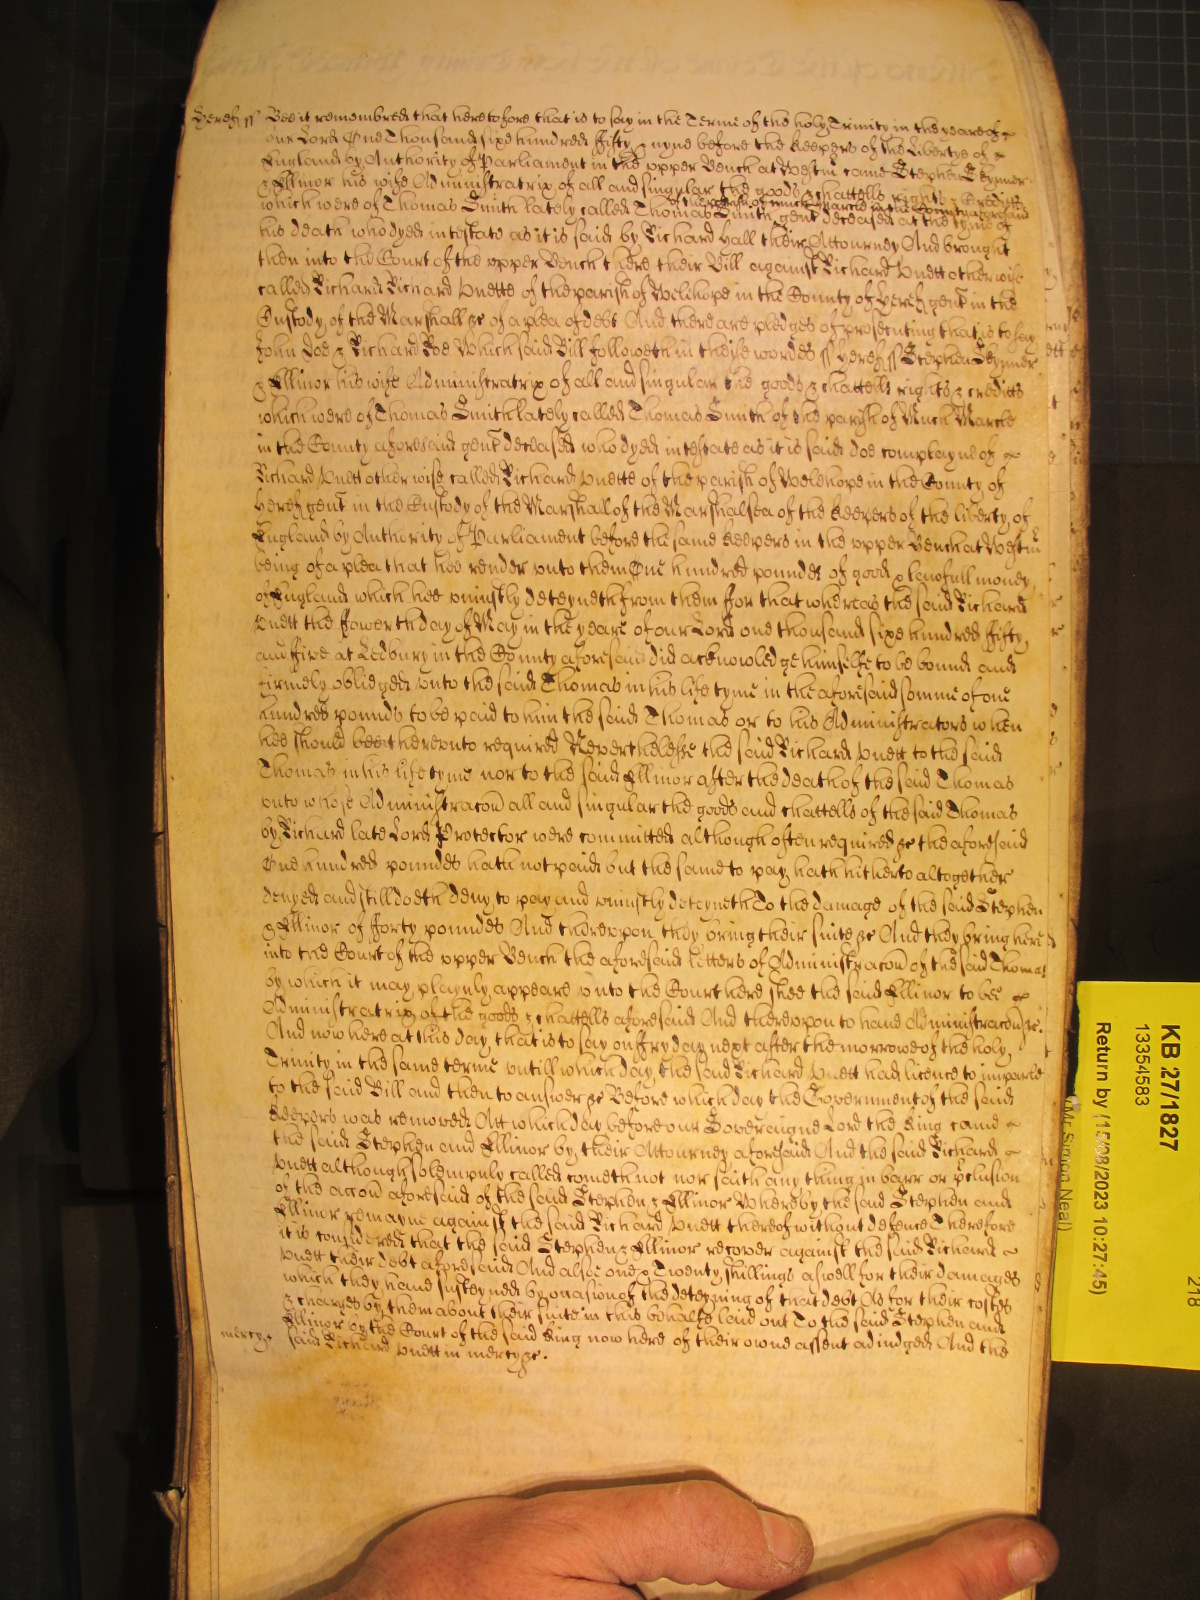 Heref ss Bee it remembred that heretofore that is to say in the Terme of the holy Trinity in the yeare of
our Lord One Thousand sixe hundred fifty & nyne before the Keepers of the Libertye of
England by Authority of Parliament in the upper Bench at Westm came Stephen Skynner
& Ellinor his wife Administratrix of all and singular the goods & chattells rights & creditts
of the parish of Much Marcle in the County aforesaid
which were of Thomas Smith lately called Thomas Smith gent deceased at the tyme of
his death who dyed intestate as it is said by Richard Hall their Attourney And brought
then into the Court of the upper Bench there their Bill against Richard Unett otherwise
called Richard Richard Unette of the parish of Wolhope in the County of Heref gent in the
Custody of the Marshall &c of a plea of debt And there are pledges of prosecuting that is to say
John Doe & Richard Roe Which said Bill followeth in theise wordes ss Heref ss Stephen Skynner
& Ellinor his wife Administratrix of all and singular the goods & chattells rights & creditts
which were of Thomas Smith lately called Thomas Smith of the parish of Much Marcle
in the County aforesaid gent deceased who dyed intestate as it is said doe complayne of
Richard Unett otherwise called Richard Unette of the parish of Wolehope in the County of
Heref gent in the Custody of the Marshall of the Marshalsea of the Keepers of the liberty of
England by Authority of Parliament before the same Keepers in the upper Bench at Westm
being of a plea that hee render unto them One hundred poundes of good & lawfull money
of England which hee uniustly deteyneth from them for that whereas the said Richard
Unett the fowerth day of May in the yeare of our Lord one thousand sixe hundred fifty
and five at Ledbury in the County aforesaid did acknowledge himselfe to be bound and
firmely obliged unto the said Thomas in his life tyme in the aforesaid somme of one
hundred pounds to be paid to him the said Thomas or to his Administrators when
hee should bee thereunto required Neverthelesse the said Richard Unett to the said
Thomas in his life tyme nor to the said Ellinor after the death of the said Thomas
unto whose Administracon all and singular the goods and chattells of the said Thomas
by Richard late Lord Protector were committed although often required &c the aforesaid
One hundred poundes hath not paid but the same to pay hath hitherto altogether
denyed and still doeth deny to pay and uniustly deteyneth To the damage of the said Stephen
& Ellinor of forty poundes And thereupon they bring their suite &c And they bring here
into the Court of the upper Bench the aforesaid letters of Administracon of the said Thomas
by which it may playnly appeare unto the Court here shee the said Ellinor to bee
Administratrix of the goods & chattells aforesaid And thereupon to have Administracon &c.
And now here at this day that is to say on fryday next after the morrowe of the holy
Trinity in the same terme untill which day the said Richard Unett had licence to imparle
to the said Bill and then to answer &c Before which day the Government of the said
Keepers was removed Att which day before our Soveraigne Lord the King came
the said Stephen and Ellinor by their Attourney aforesaid And the said Richard
Unett although solempnly called cometh not nor saith any thing in barr or preclusion
of the accon aforesaid of the said Stephen & Ellinor Whereby the said Stephen and
Ellinor remayne against the said Richard Unett thereof without defence Therefore
it is considered that the said Stephen & Ellinor recover against the said Richard
Unett their debt aforesaid And alsoe one & Twenty shillings aswell for their damages
which they have susteyned by occasion of the deteyning of that debt As for their costes
& charges by them about their suite in this behalfe laid out To the said Stephen and
Ellinor by the Court of the said King now here of their owne assent adiudged And the
mercy said Richard Unett in mercy &c.
KB 27/1827
13354583
Return by (15/08/2023 10:27:45)
(Mr Simon Neal)
218